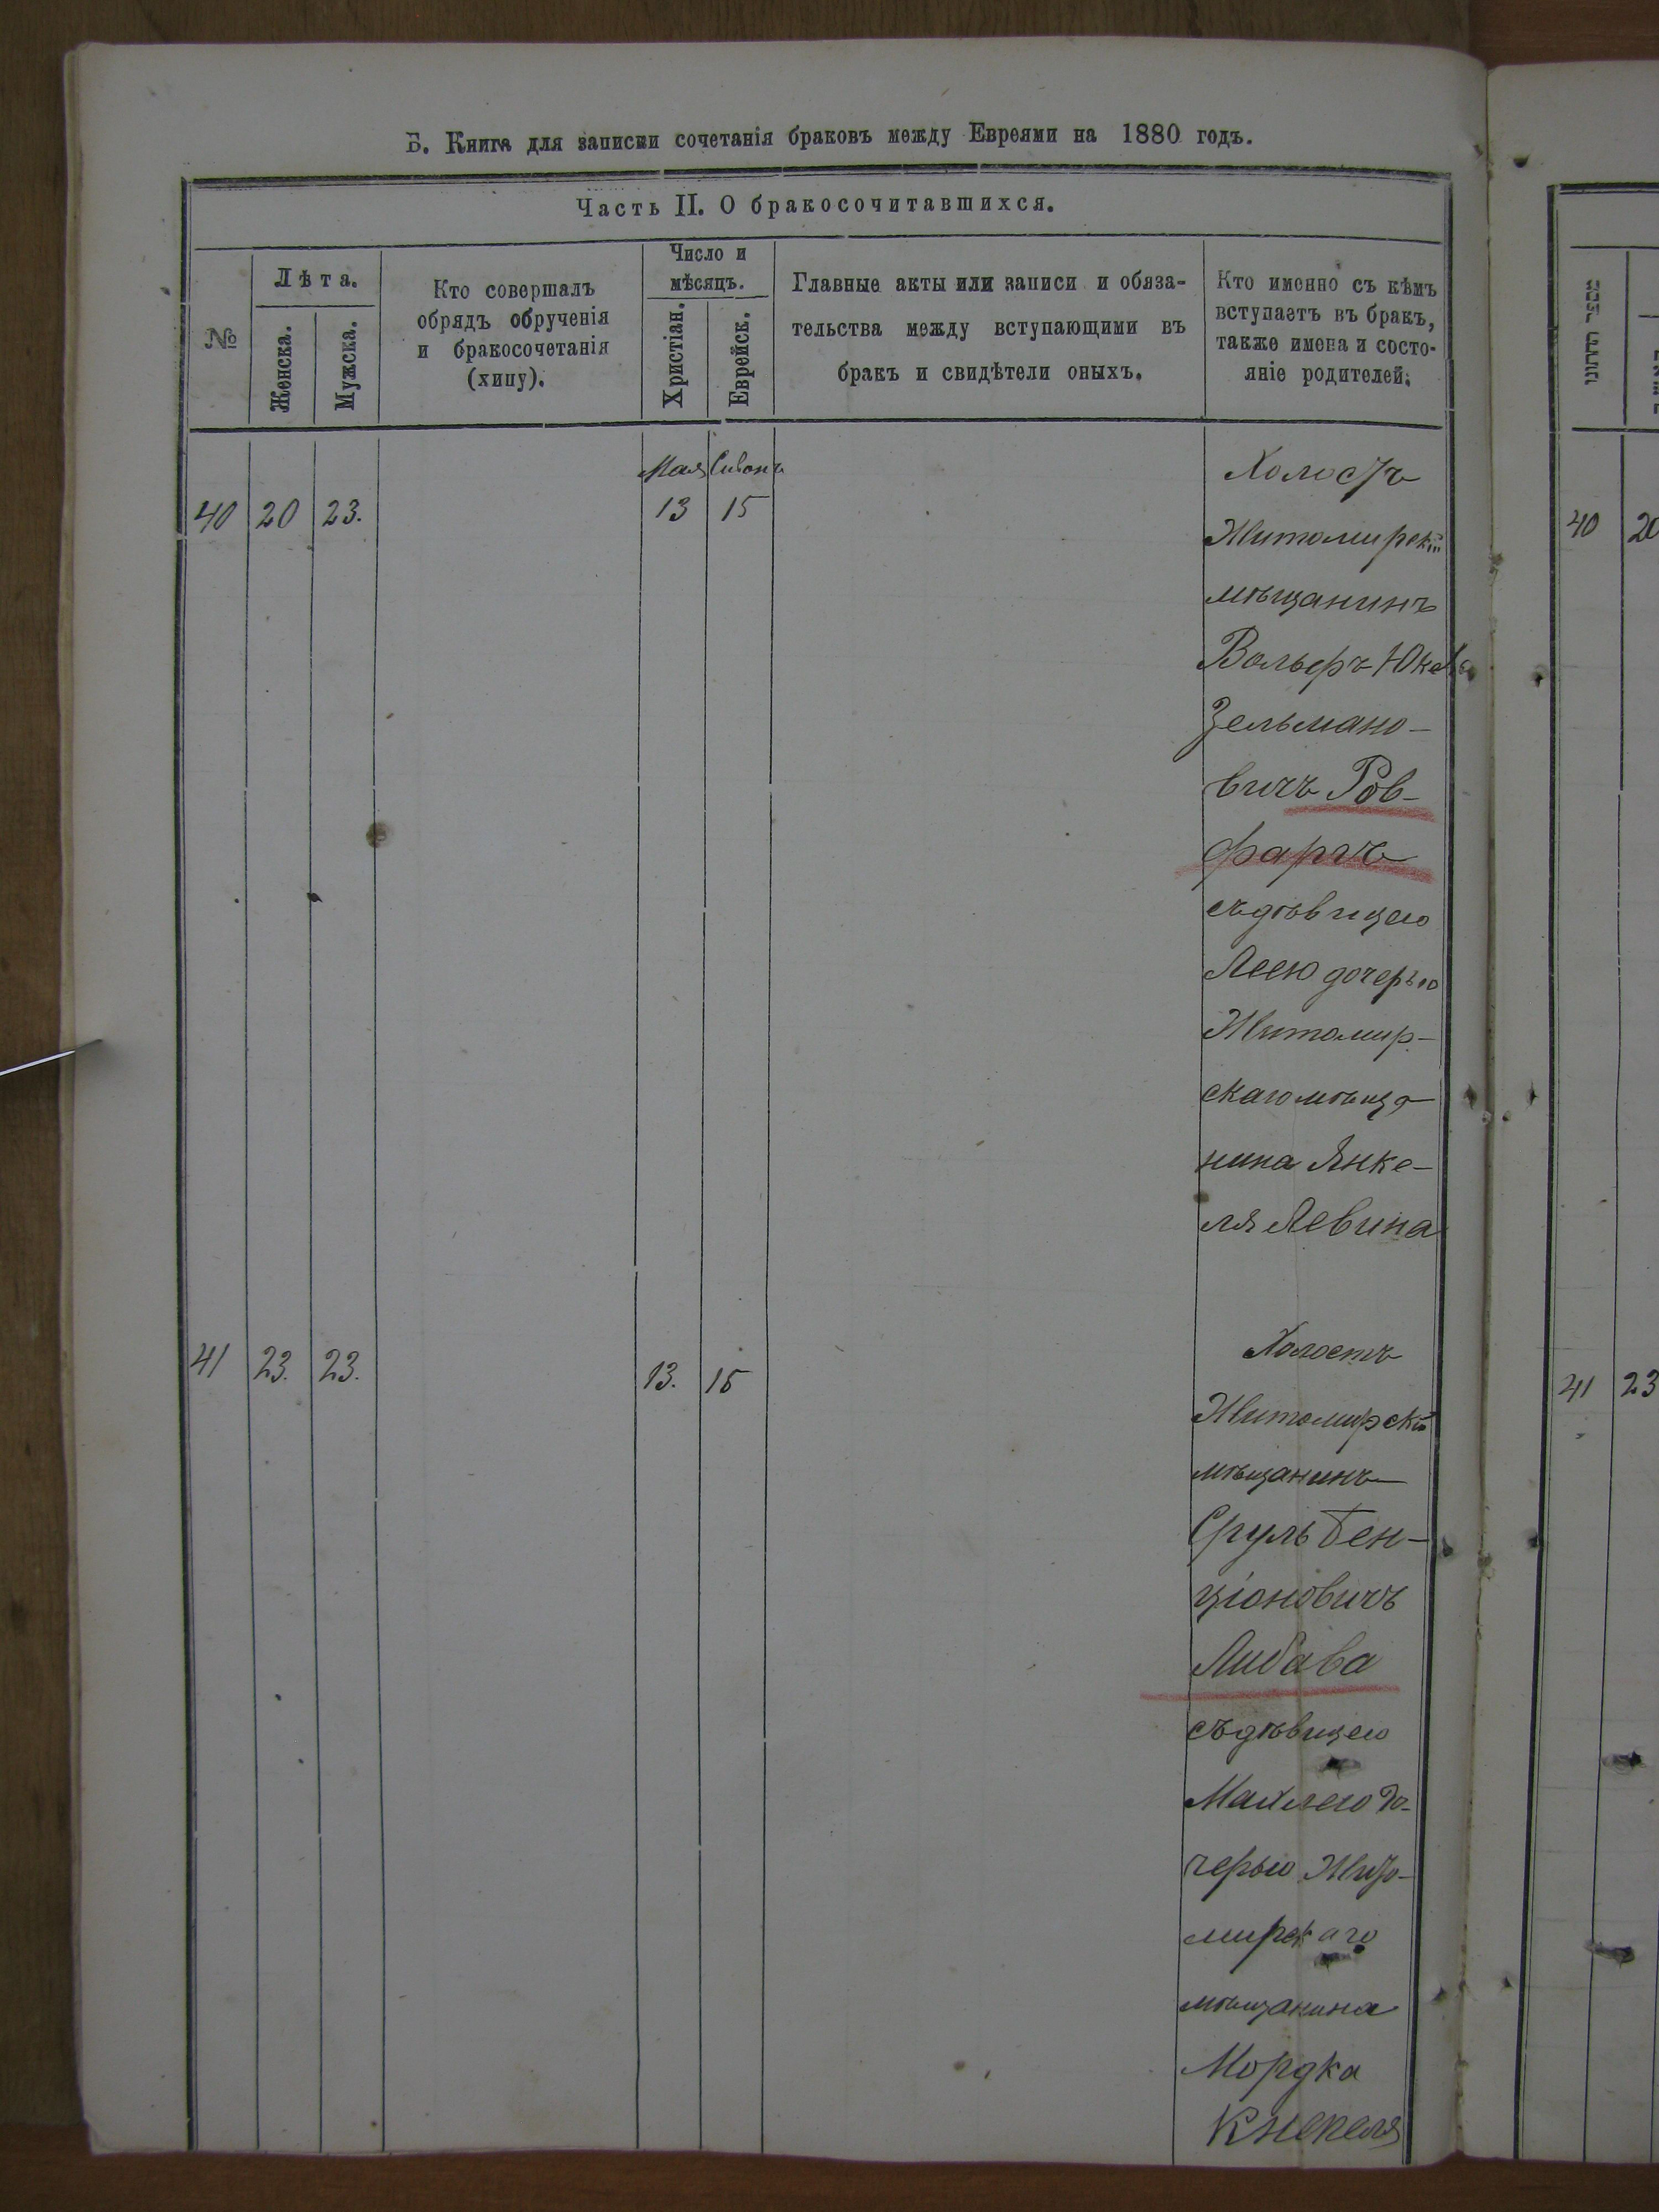 Б. Книга для записки сочетанія браковъ между Евреями на 1880 годъ.
Часть II. О бракосочитавшихся.
№
Лѣта.
Женска.
Мужска.
Кто совершалъ
обрядъ обрученія
и бракосочетанія
(хипу).
Число и
мѣсяцъ.
Христіан.
Еврейск.
Главные акты или записи и обяза-
тельства между вступающими въ
бракъ и свидѣтели оныхъ.
Кто именно съ кѣмъ
вступаетъ въ бракъ,
также имена и состо-
яніе родителей.
Мая Сивонъ
40 20 23. 13 15
Холостъ
Житомирскій
мѣщанинъ
Вольфъ Юкель
Зельмано-
вичъ Ров-
фарчъ
съ дѣвицею
Леею дочерью
Житомир-
скаго мѣща-
нина Янке-
ля Левина
41 23. 23. 13. 15
Холостъ
Житомирскій
мѣщанинъ
Сруль Бен-
ціоновичъ
Либава
съ дѣвицею
Махлею до-
черью Жито-
мирскаго
мѣщанина
Мордка
40 20
41 23